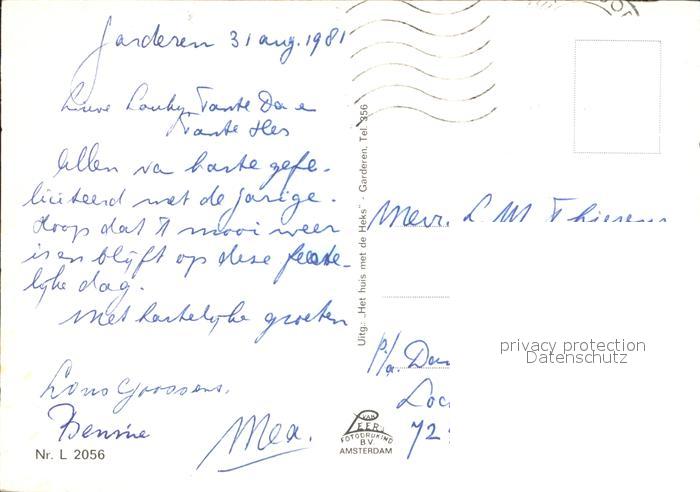 Garderen 31 aug. 1981
Lieve Louky, Tante Da en
Tante Hes
Allen van harte gefe-
liciteerd met de jarige.
Hoop dat 't mooi weer
is en blijft op deze feeste-
lijke dag.
Met hartelijke groeten
Lous Goossens.
Bennie
Mea.
Nr. L 2056
Uitg. „Het huis met de Heks" - Garderen, Tel. 356
VAN
LEER'S
FOTODRUKIND
B.V.
AMSTERDAM
Mevr. L M Thierens
p/a. Dam
Loc
72
privacy protection
Datenschutz